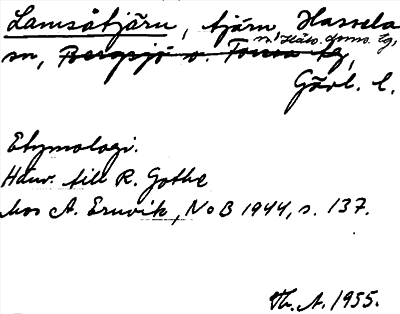 Lamsåtjärn, tjärn, Hassela
sn, Bergsjö o. Forsa tg,
n. Häls. doms. tg,
Gävl. l.
Etymologi.
Hänv. till R. Gothe
hos A. Ernvik, NoB 1944, s. 137.
Th. A. 1955.